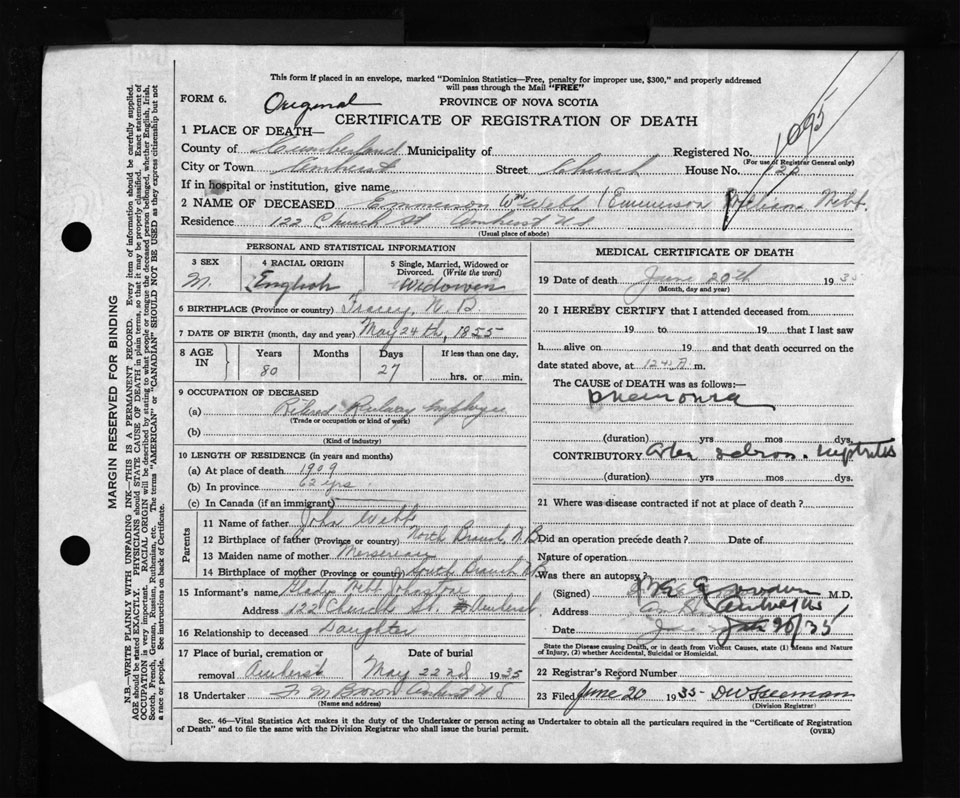 This form if placed in an envelope, marked "Dominion Statistics—Free, penalty for improper use, $300," and properly addressed
will pass through the Mail "FREE"
FORM 6. Original PROVINCE OF NOVA SCOTIA
CERTIFICATE OF REGISTRATION OF DEATH
1095
1 PLACE OF DEATH—
County of Cumberland Municipality of Registered No.
(For use of Registrar General only)
City or Town Amherst Street Church House No. 122
If in hospital or institution, give name
2 NAME OF DECEASED Emmerson Wm Webb (Emmerson William Webb.
Residence 122 Church St Amherst N S
(Usual place of abode)
PERSONAL AND STATISTICAL INFORMATION
3 SEX 4 RACIAL ORIGIN 5 Single, Married, Widowed or Divorced. (Write the word)
M. English Widower
6 BIRTHPLACE (Province or country) Tracey, N. B.
7 DATE OF BIRTH (month, day and year) May 24th, 1855
8 AGE IN Years Months Days If less than one day.
80 27 hrs. or min.
9 OCCUPATION OF DECEASED
(a) Retired Railway Employee
(Trade or occupation or kind of work)
(b)
(Kind of industry)
10 LENGTH OF RESIDENCE (in years and months)
(a) At place of death 1909
(b) In province 62 yrs.
(c) In Canada (if an immigrant)
Parents
11 Name of father John Webb
12 Birthplace of father (Province or country) North Branch, N.B.
13 Maiden name of mother Mersereau
14 Birthplace of mother (Province or country) South Branch N.B.
15 Informant's name Gladys Webb
Address 122 Church St. Amherst.
16 Relationship to deceased Daughter
17 Place of burial, cremation or removal Date of burial
Amherst May 22nd 1935
18 Undertaker F. M. Brown Amherst N S
(Name and address)
MEDICAL CERTIFICATE OF DEATH
19 Date of death June 20th 1935
(Month, day and year)
20 I HEREBY CERTIFY that I attended deceased from
19 to 19 that I last saw
h alive on 19 and that death occurred on the
date stated above, at 12 A m.
The CAUSE OF DEATH was as follows:
pneumonia
(duration) yrs mos dys.
CONTRIBUTORY
(duration) yrs mos dys.
21 Where was disease contracted if not at place of death?
Did an operation precede death? Date of
Nature of operation
Was there an autopsy?
(Signed) M.D.
Address Amherst NS
Date June 20/35
State the Disease causing Death, or in death from Violent Causes, state (1) Means and Nature
of Injury, (2) whether Accidental, Suicidal or Homicidal.
22 Registrar's Record Number
23 Filed June 20 1935 D W Freeman
(Division Registrar)
Sec. 46—Vital Statistics Act makes it the duty of the Undertaker or person acting as Undertaker to obtain all the particulars required in the "Certificate of Registration
of Death" and to file the same with the Division Registrar who shall issue the burial permit.
(OVER)
MARGIN RESERVED FOR BINDING
N.B.—WRITE PLAINLY WITH UNFADING INK—THIS IS A PERMANENT RECORD. Every item of information should be carefully supplied.
AGE should be stated EXACTLY. PHYSICIANS should STATE CAUSE OF DEATH in plain terms, so that it may be properly classified. Exact statement of
OCCUPATION is very important. RACIAL ORIGIN will be described by stating to what people or tongue the deceased person belonged, whether English, Irish,
Scotch, French, German, Russian, Ruthenian, etc. The terms "AMERICAN" or "CANADIAN" SHOULD NOT BE USED as they express citizenship but not
a race or people. See instructions on back of Certificate.